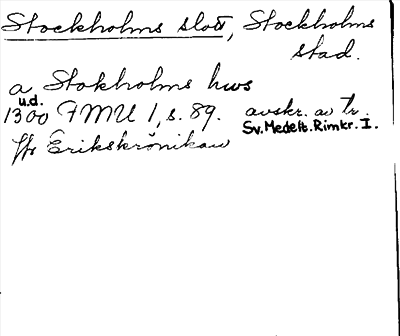 Stockholms slott, Stockholms
stad.
a Stokholms hws
u.d.
1300 FMU 1, s. 89. avskr. av tr.
Sv. Medelt. Rimkr. I.
ffr Erikskrönikan